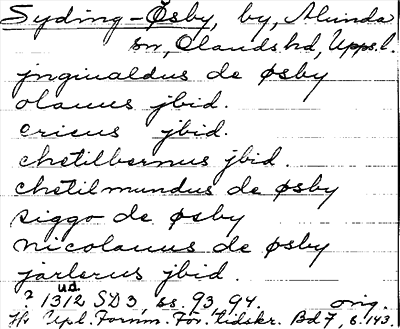 Syding-Ösby, by, Alunda
sn, Olands hd, Upps. l.
jnginaldus de øsby
olauus jbid.
ericus jbid.
chetilbernus jbid.
chetilmundus de øsby
siggo de øsby
nicolauus de øsby
jarlerus jbid.
? u.d. 1312 SD 3, ss. 93, 94. orig.
Hs Upl. Fornm. För. tidskr. Bd 7, s. 143.